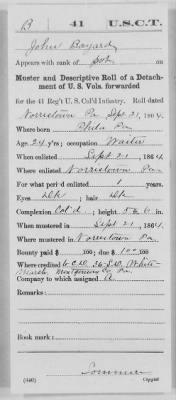 B | 41 | U.S.C.T.
John Bayard
Appears with rank of Pvt on
Muster and Descriptive Roll of a Detach-
ment of U. S. Vols. forwarded
for the 41 Reg't U. S. Col'd Infantry. Roll dated
Norristown Pa Sept 21, 1864
Where born Phila Pa
Age 24 y'rs; occupation Waiter
When enlisted Sept 21, 1864
Where enlisted Norristown Pa
For what period enlisted 1 years.
Eyes blk; hair blk
Complexion Col'd; height 5 ft. 6 in.
When mustered in Sept 21, 1864
Where mustered in Norristown Pa
Bounty paid $ 100; due $ 100
Where credited 6 C.D. White-
marsh, Montgomery Co, Pa
Company to which assigned
Remarks:
Book mark:
Copyist